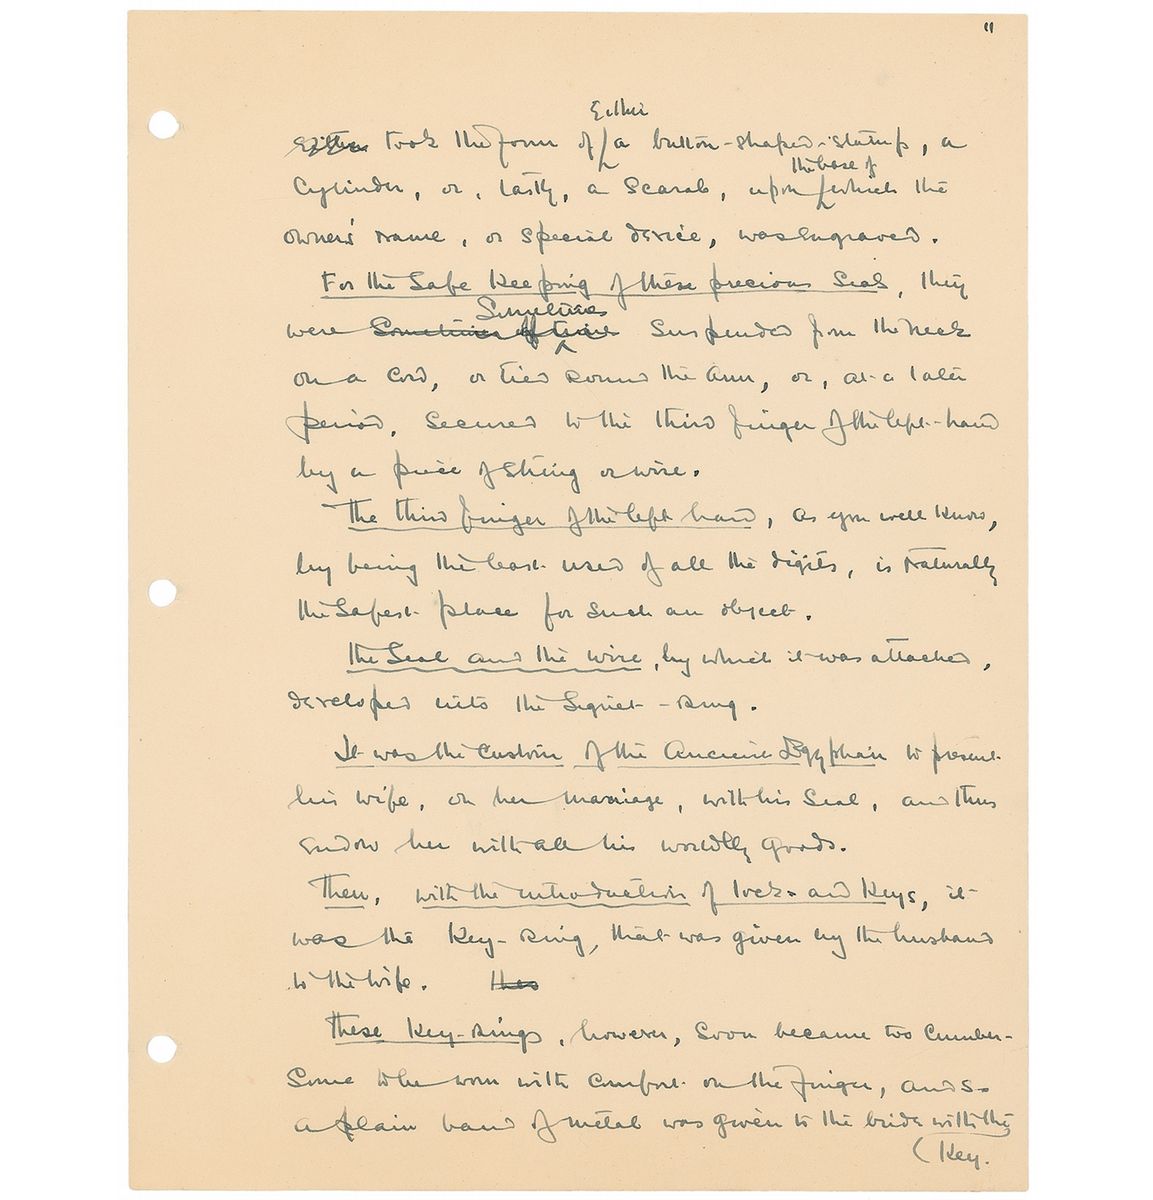 11
Either
~~Either~~ took the form of / a button-shaped-stamp, a
the base of
Cylinder, or, lastly, a Scarab, upon / which the
owner's name, or special device, was engraved.
For the Safe Keeping of these precious Seals, they
Sometimes
were ~~Sometimes of time~~ Suspended from the neck
on a Cord, or tied round the Arm, or, at a later
period, Secured to the third finger of the left-hand
by a piece of string or wire.
The third finger of the left hand, as you well know,
by being the least used of all the digits, is naturally
the Safest place for such an object.
the Seal and the wire, by which it was attached,
developed into the Signet-ring.
It was the Custom of the Ancient Egyptian to present
his wife, on her marriage, with his Seal, and thus
endow her with all his worldly goods.
Then, with the introduction of locks and keys, it
was the Key-ring, that was given by the husband
to the wife. ~~thes~~
These Key-rings, however, soon became too Cumber-
some to be worn with comfort on the finger, and so
a plain band of metal was given to the bride with the
( Key.